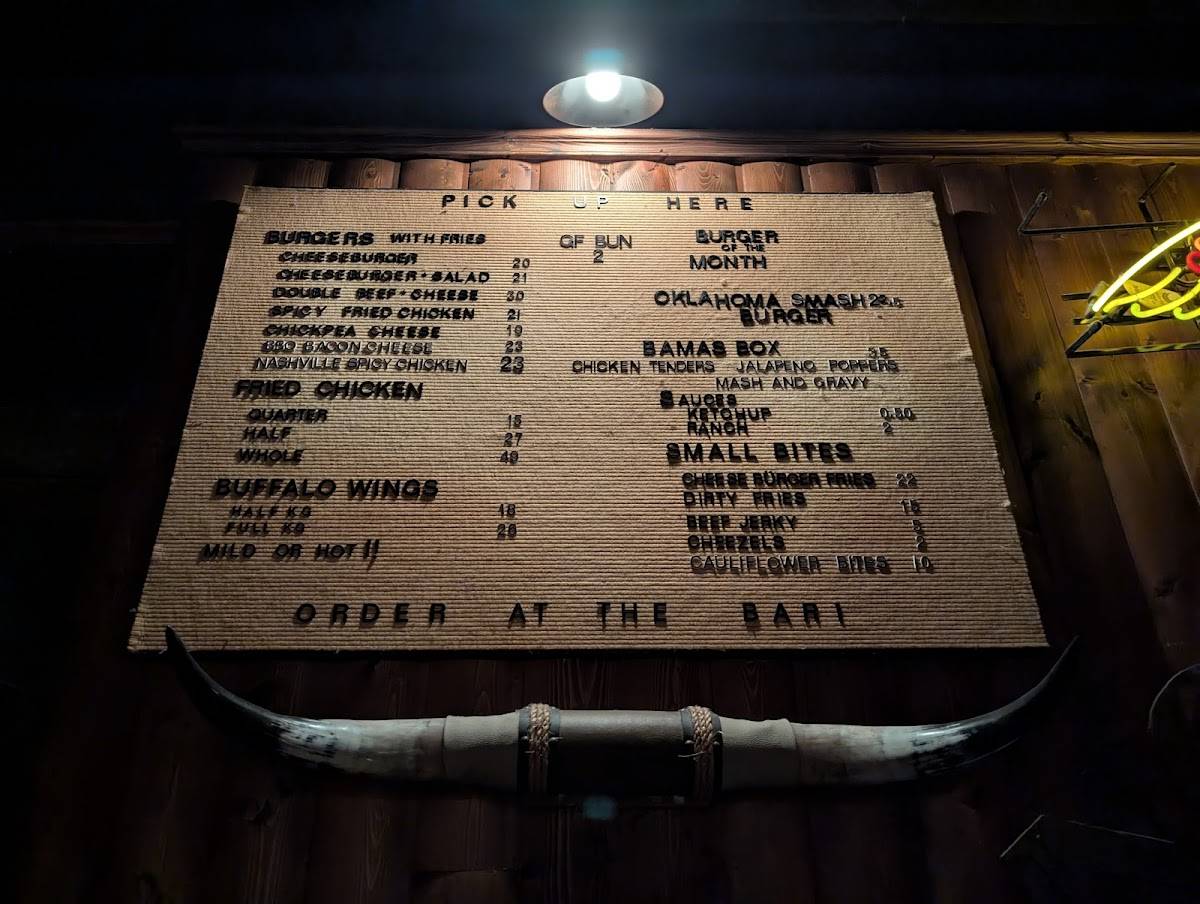 PICK UP HERE
BURGERS WITH FRIES
CHEESEBURGER 20
CHEESEBURGER + SALAD 21
DOUBLE BEEF + CHEESE 30
SPICY FRIED CHICKEN 21
CHICKPEA CHEESE 19
BBQ BACON CHEESE 23
NASHVILLE SPICY CHICKEN 23
FRIED CHICKEN
QUARTER 15
HALF 27
WHOLE 40
BUFFALO WINGS
HALF KG 18
FULL KG
MILD OR HOT !!
GF BUN
2
BURGER
OF THE
MONTH
OKLAHOMA SMASH
BURGER
BAMAS BOX
CHICKEN TENDERS JALAPENO POPPERS
MASH AND GRAVY
SAUCES
KETCHUP 0.50
RANCH 2
SMALL BITES
CHEESE BÜRGER FRIES 22
DIRTY FRIES 15
BEEF JERKY 5
CHEEZELS 2
CAULIFLOWER BITES 10
ORDER AT THE BAR!